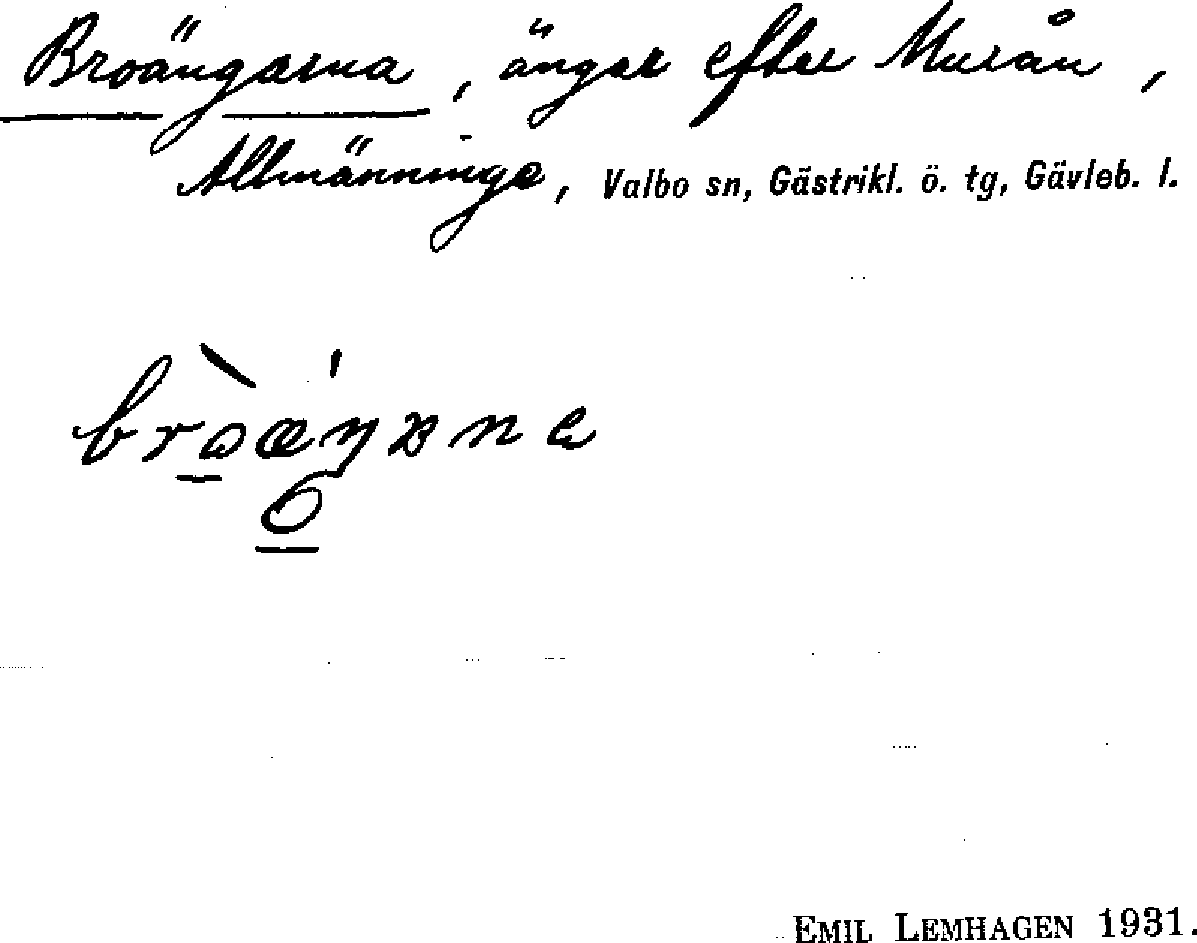 Broängarna, ängar efter Murån,
Allmänninge, Valbo sn, Gästrikl. ö. tg, Gävleb. l.
EMIL LEMHAGEN 1931.